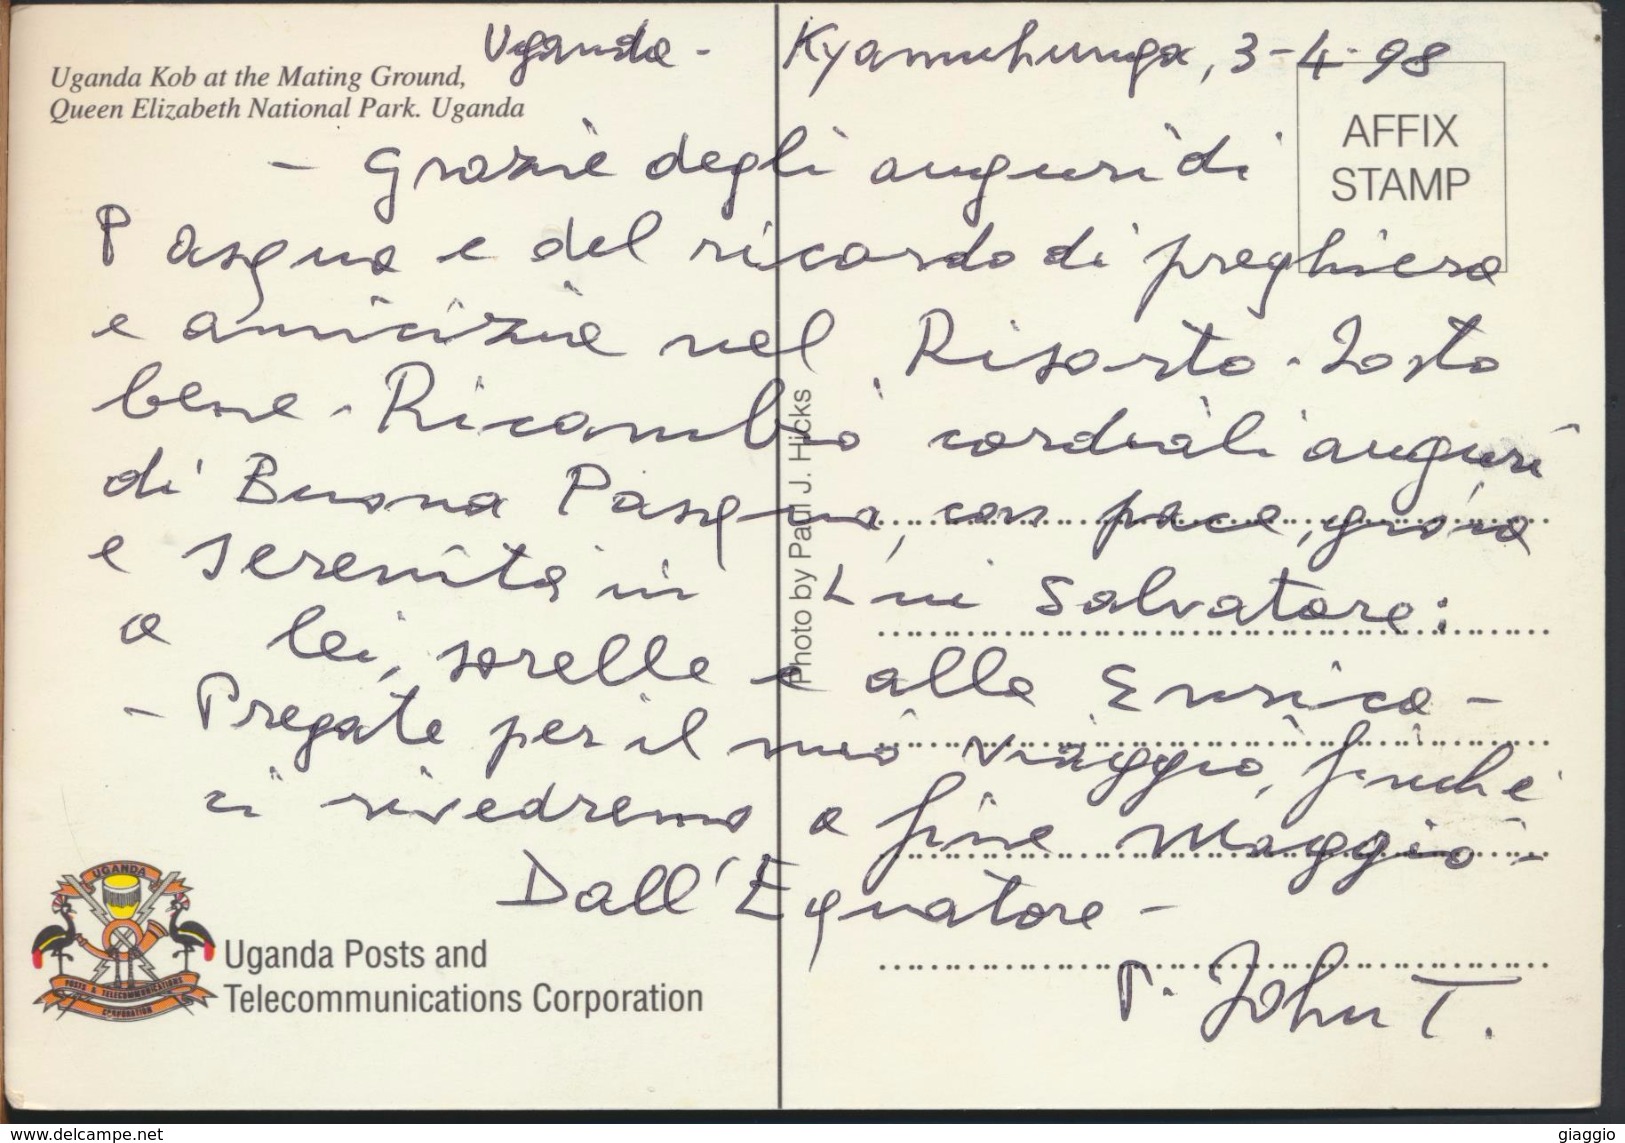 Uganda - Kyamuhunga, 3-4-98
Uganda Kob at the Mating Ground,
Queen Elizabeth National Park. Uganda
AFFIX
STAMP
- Grazie degli auguri di
Pasqua e del ricordo di preghiera
e amicizia nel Risorto. Io sto
bene. Ricambio cordiali auguri
di Buona Pasqua, con pace, gioia
e serenità in Lui Salvatore:
a lei, sorelle e alla Enrica -
- Pregate per il mio viaggio, finché
ci rivedremo a fine Maggio -
Dall'Equatore -
P. John T.
Photo by Paul J. Hicks
UGANDA
POSTS & TELECOMMUNICATIONS
CORPORATION
Uganda Posts and
Telecommunications Corporation
www.delcampe.net
giaggio